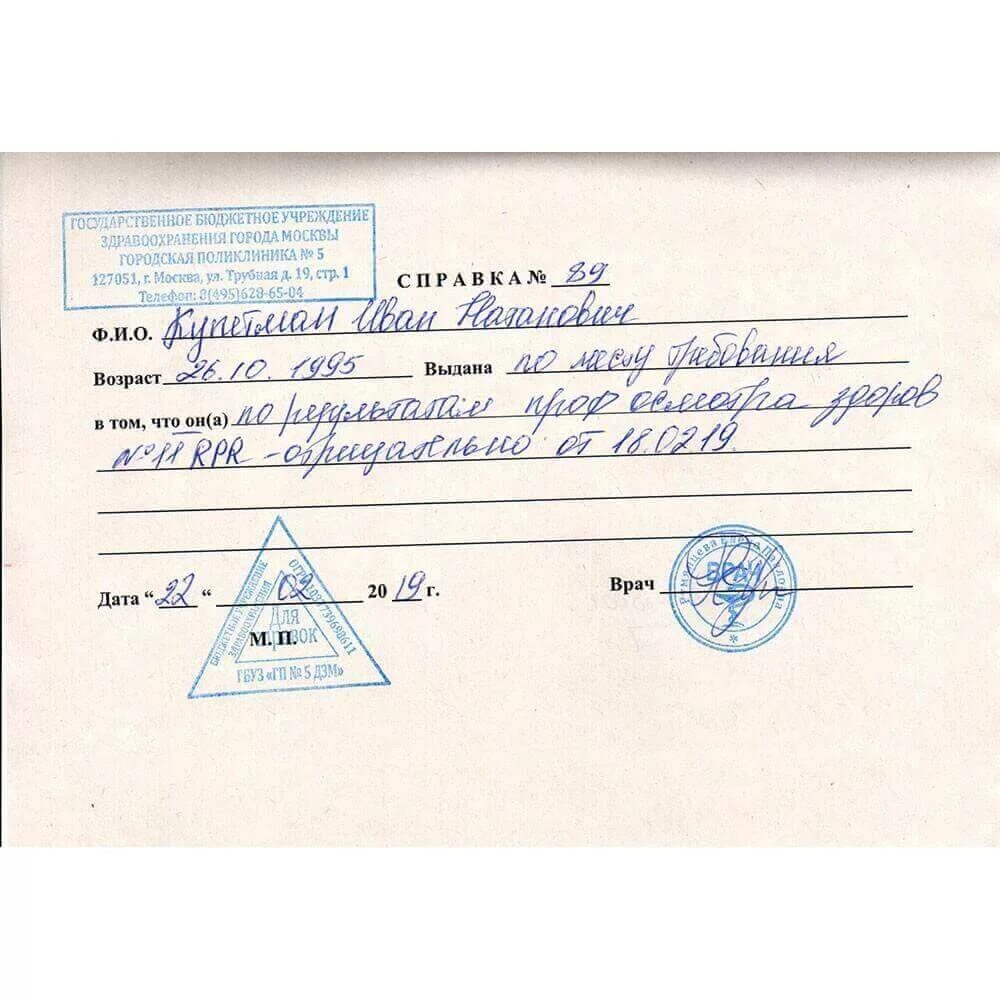 ГОСУДАРСТВЕННОЕ БЮДЖЕТНОЕ УЧРЕЖДЕНИЕ
ЗДРАВООХРАНЕНИЯ ГОРОДА МОСКВЫ
ГОРОДСКАЯ ПОЛИКЛИНИКА № 5
127051, г. Москва, ул. Трубная д. 19, стр. 1
Телефон: 8(495)628-65-04
СПРАВКА № 89
Ф.И.О. Купетман Иван Натанович
Возраст 26.10.1995 Выдана по месту требования
в том, что он(а) по результатам проф осмотра здоров
№11 RPR - отрицательно от 18.02.19.
Дата “22“ 02 2019 г.
Врач
М. П.
БЮДЖЕТНОЕ УЧРЕЖДЕНИЕ
ЗДРАВООХРАНЕНИЯ
ДЛЯ
ГБУЗ «ГП № 5 ДЗМ»
Елена Павловна
ВРАЧ